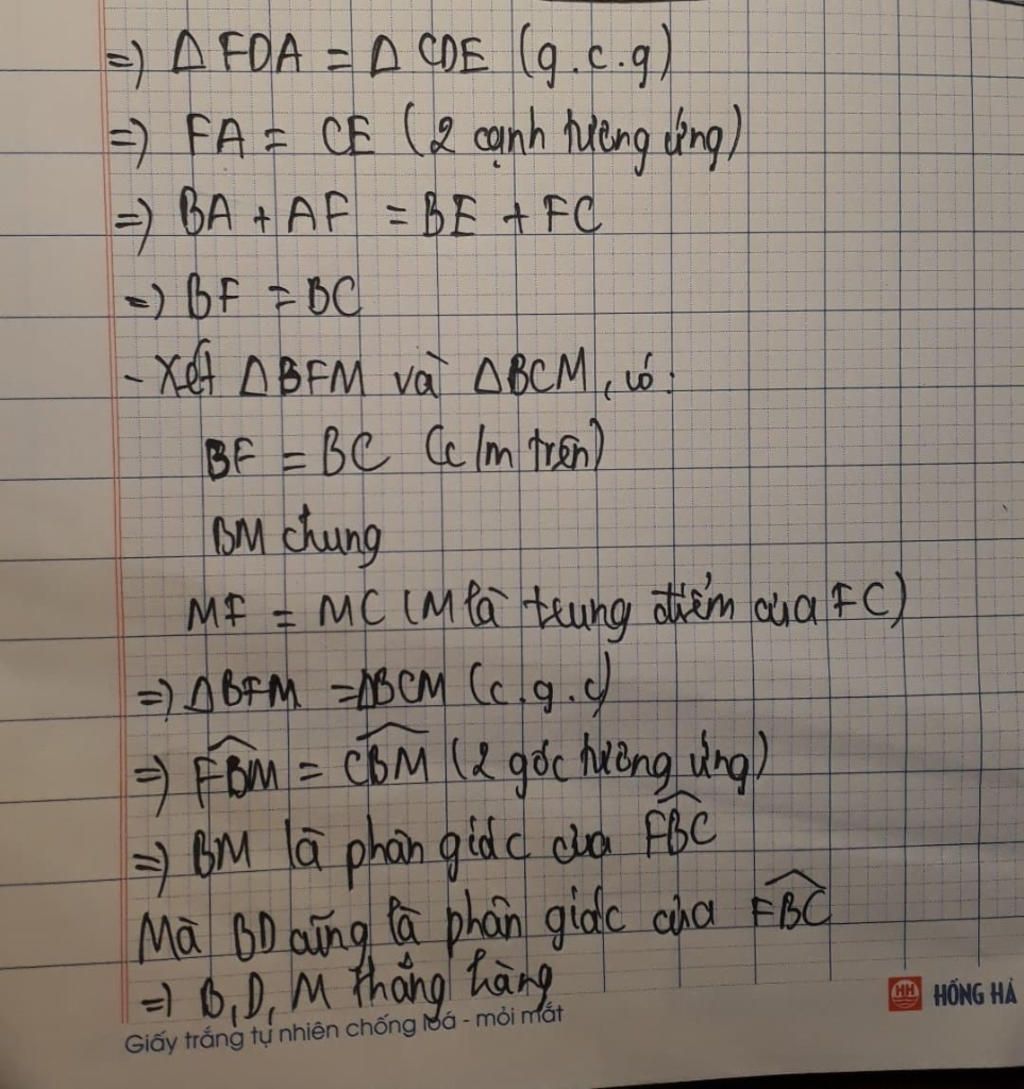 => Δ FDA = Δ CDE (g.c.g)
=> FA = CE (2 cạnh tương ứng)
=> BA + AF = BE + FC
=> BF = BC
- Xét ΔBFM và ΔBCM, có:
BF = BC (c/m trên)
BM chung
MF = MC (M là trung điểm của FC)
=> ΔBFM = ΔBCM (c.g.c)
=> \widehat{FBM} = \widehat{CBM} (2 góc tương ứng)
=> BM là phân giác của \widehat{FBC}
Mà BD cũng là phân giác của \widehat{FBC}
=> B, D, M thẳng hàng
HH HỒNG HÀ
Giấy trắng tự nhiên chống loá - mỏi mắt